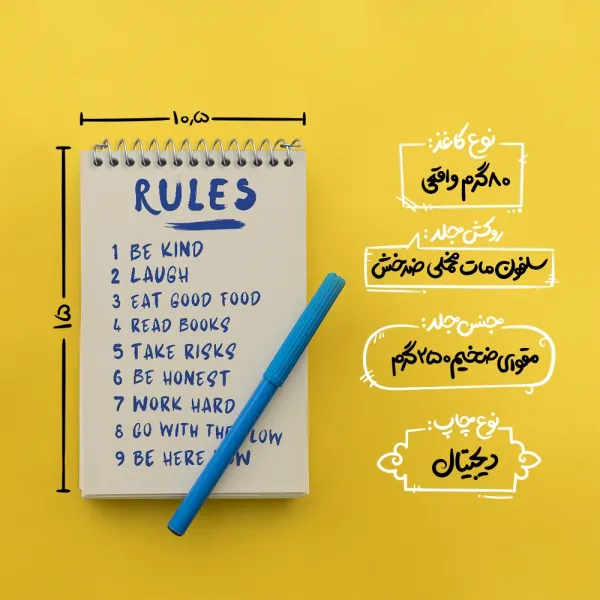 ۱۰,۵
۱۵
RULES
1 BE KIND
2 LAUGH
3 EAT GOOD FOOD
4 READ BOOKS
5 TAKE RISKS
6 BE HONEST
7 WORK HARD
8 GO WITH THE LOW
9 BE HERE W
نوع کاغذ:
۸۰گرم واقعی
روکش جلد:
سلفون مات مخملی ضدخش
جنس جلد:
مقوای ضخیم ۲۵۰گرم
نوع چاپ:
دیجیتال